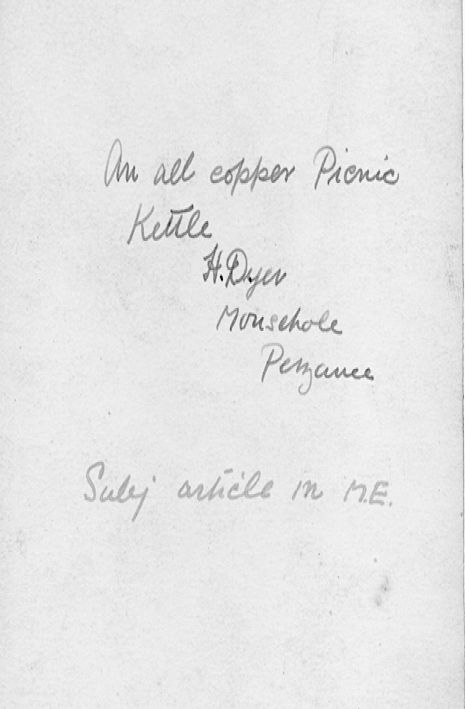 An all copper Picnic
Kettle
H. Dyer
Mousehole
Penzance
Subj article in M.E.